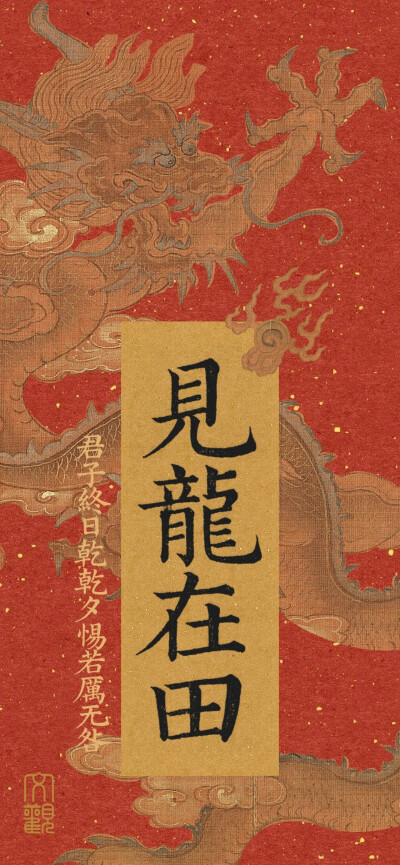 見龍在田
君子終日乾乾夕惕若厲无咎
文觀